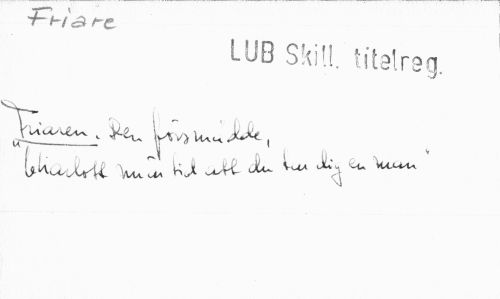 Friare
LUB Skill. titelreg.
Friaren. Den försmådde,
"Charlott nu är tid att du tar dig en man"